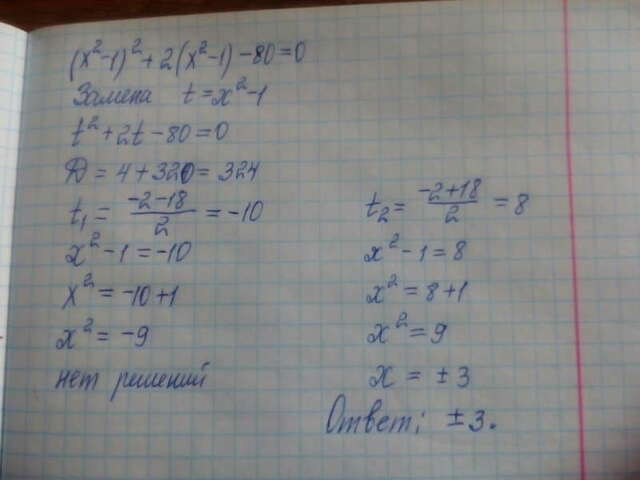 (x²-1)² + 2(x²-1) - 80 = 0
Замена t = x²-1
t² + 2t - 80 = 0
D = 4 + 320 = 324
t₁ = (-2-18)/2 = -10
x² - 1 = -10
x² = -10 + 1
x² = -9
нет решений
t₂ = (-2+18)/2 = 8
x² - 1 = 8
x² = 8 + 1
x² = 9
x = ±3
Ответ: ±3.